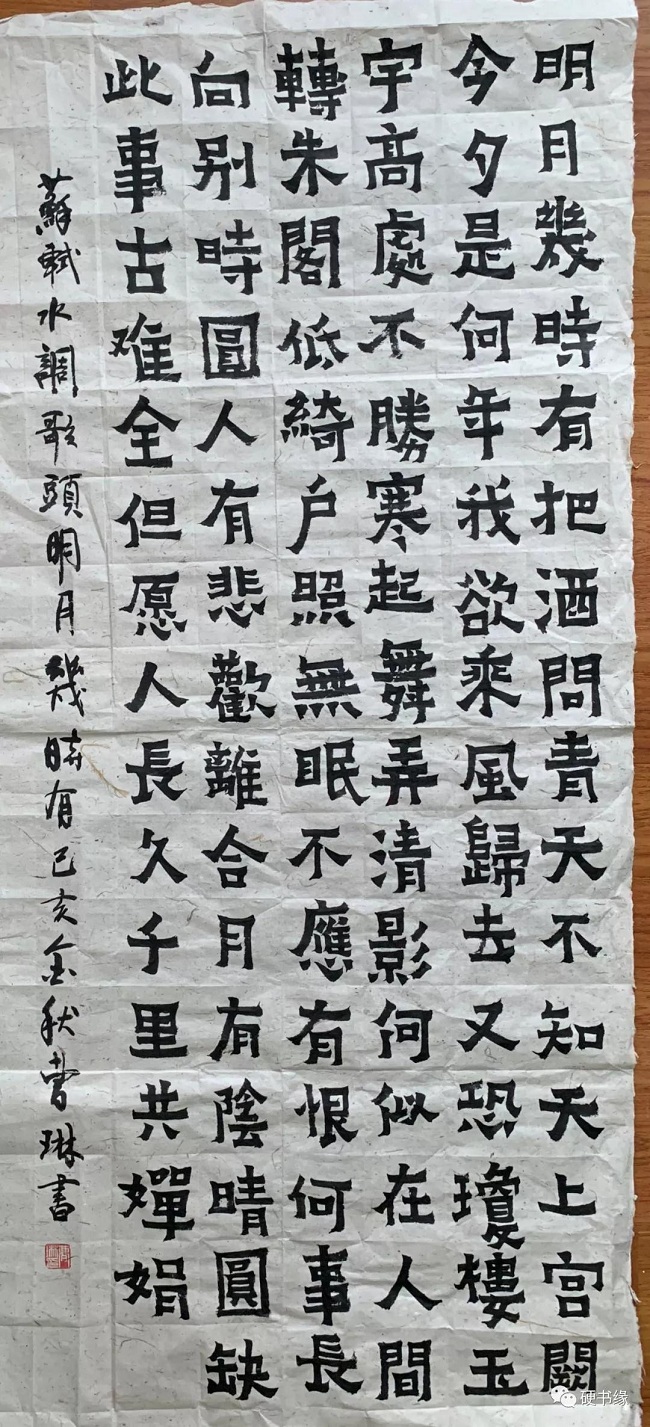 明月幾時有把酒問青天不知天上宫闕
今夕是何年我欲乘風歸去又恐瓊樓玉
宇髙處不勝寒起舞弄清影何似在人間
轉朱閣低綺户照無眠不應有恨何事長
向别時圓人有悲歡離合月有陰晴圓缺
此事古难全但愿人長久千里共嬋娟
蘇軾水調歌頭明月幾時有己亥金秋曹琳書
硬书缘